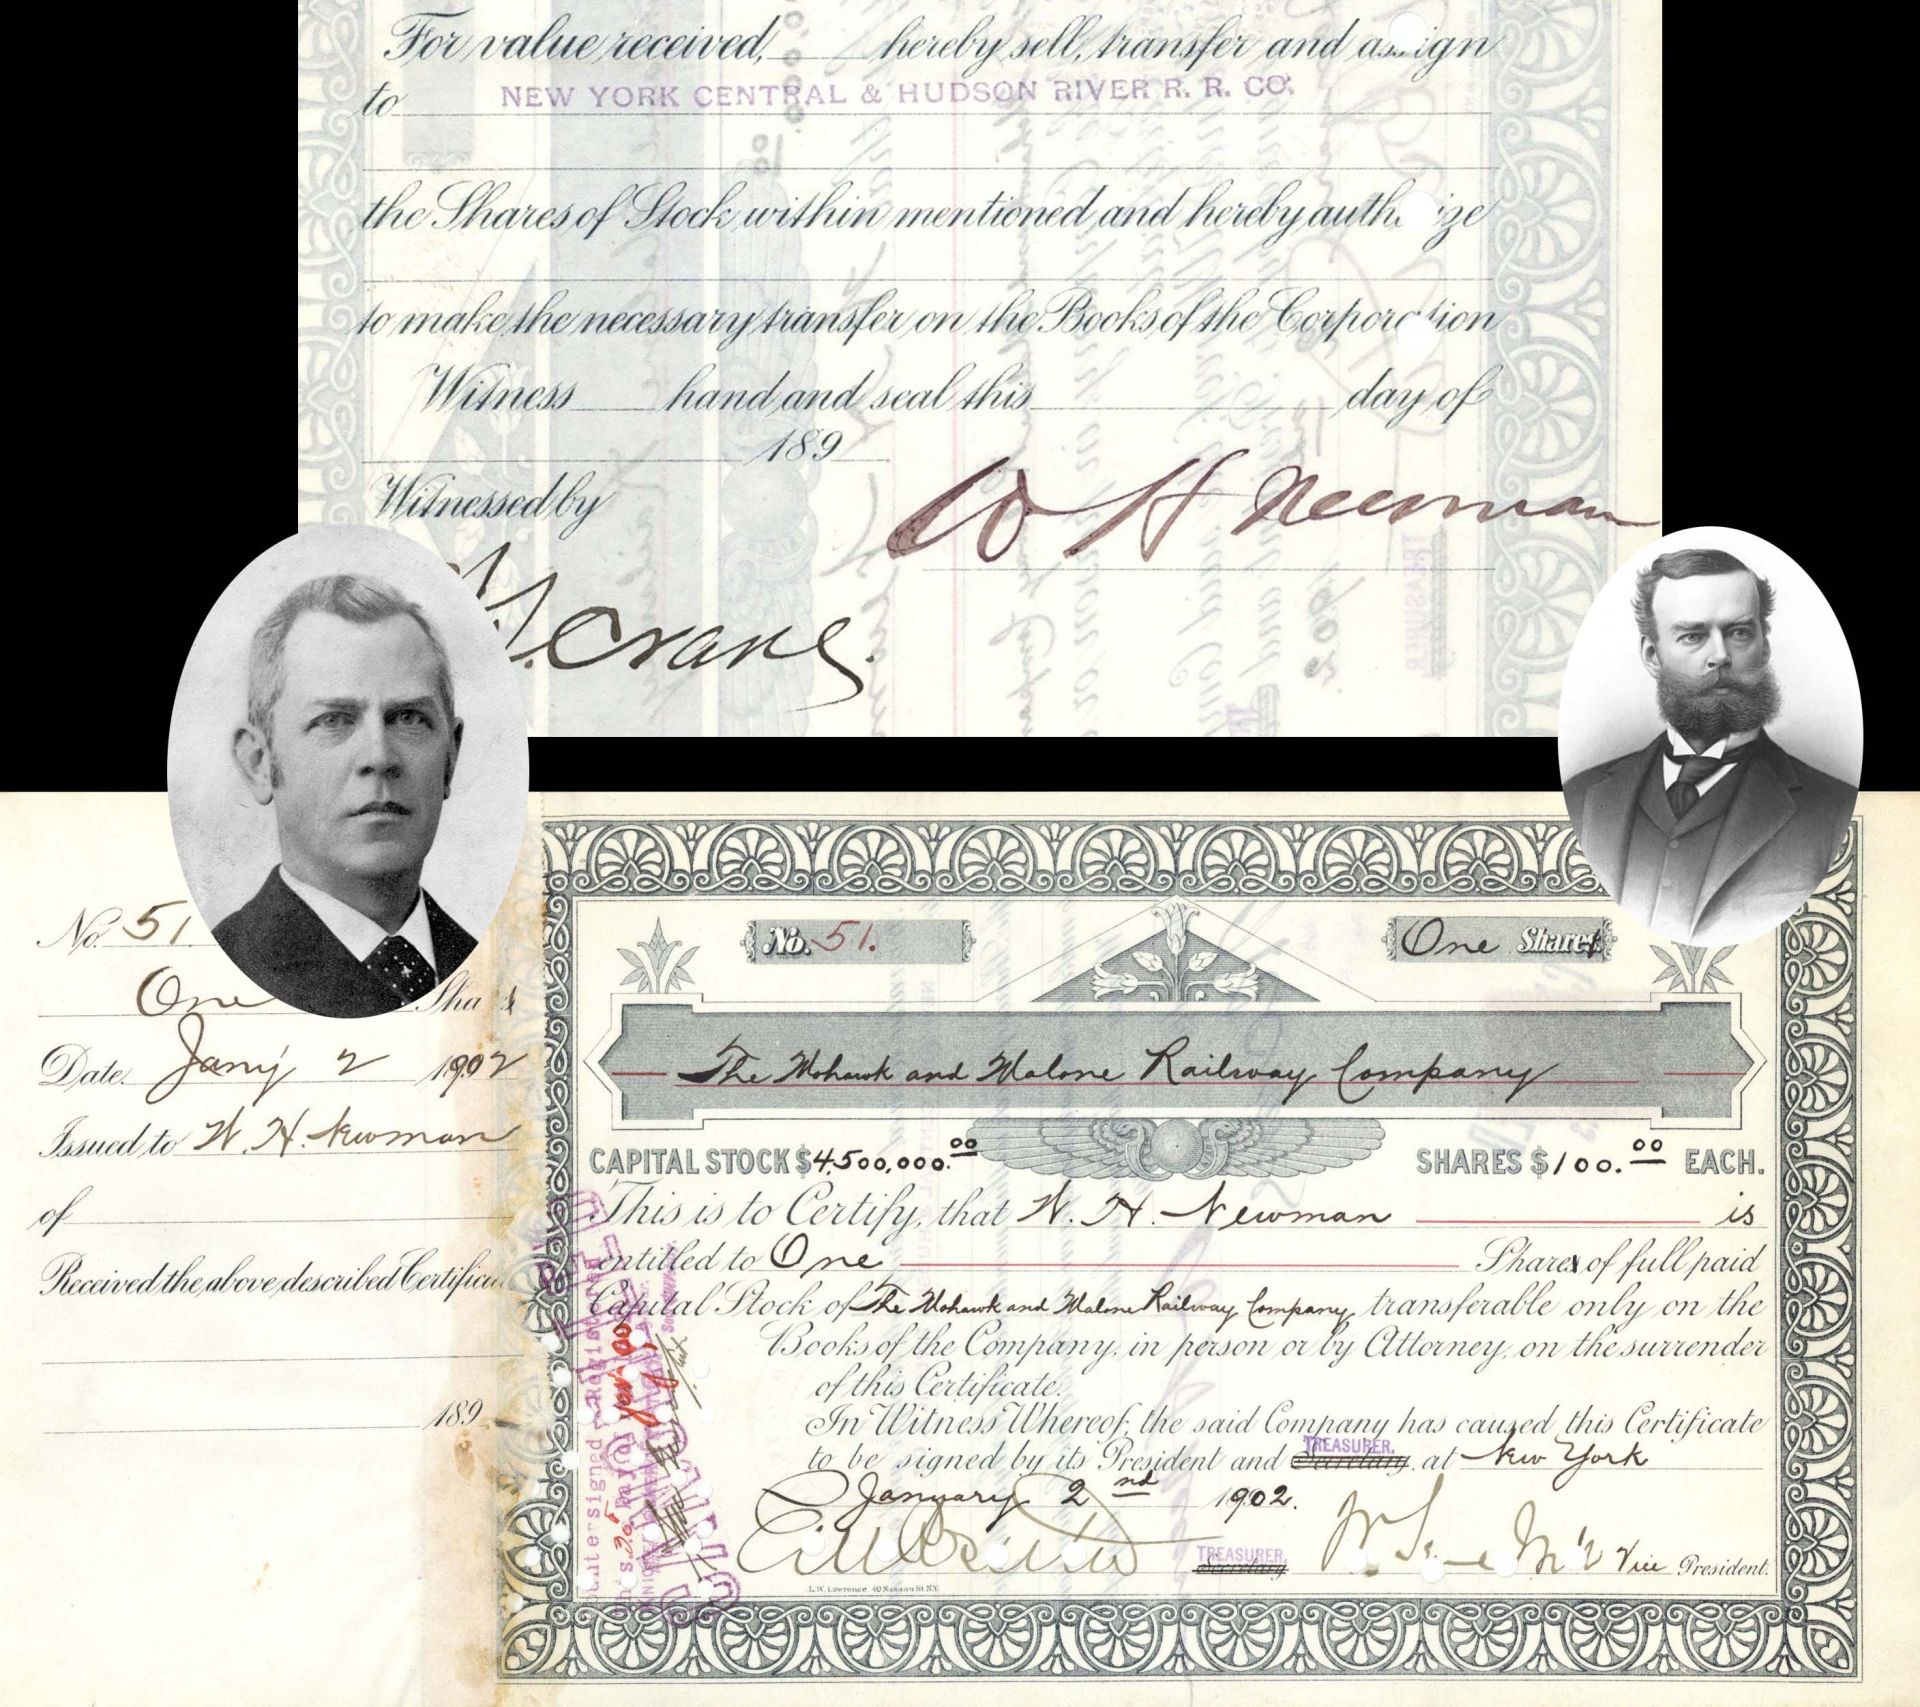 For value received, hereby sell, transfer and assign
to NEW YORK CENTRAL & HUDSON RIVER R. R. CO.
the Shares of Stock within mentioned and hereby authorize
to make the necessary transfer on the Books of the Corporation
Witness hand and seal this day of
189
Witnessed by
W H Newman
Crane
No. 51
One Shares
Date Jan'y 2 1902
Issued to W. H. Newman
of
Received the above described Certificate
189
No. 51.
One Shares
The Mohawk and Malone Railway Company
CAPITAL STOCK $4,500,000.00 SHARES $100.00 EACH.
This is to Certify, that W. H. Newman is
entitled to One Shares of full paid
Capital Stock of The Mohawk and Malone Railway Company, transferable only on the
Books of the Company, in person or by Attorney, on the surrender
of this Certificate.
In Witness Whereof, the said Company has caused this Certificate
to be signed by its President and Secretary TREASURER. at New York
January 2nd 1902.
TREASURER.
Secretary
Vice President.
L. W. Lawrence, 40 Nassau St. N.Y.
Countersigned & Registered